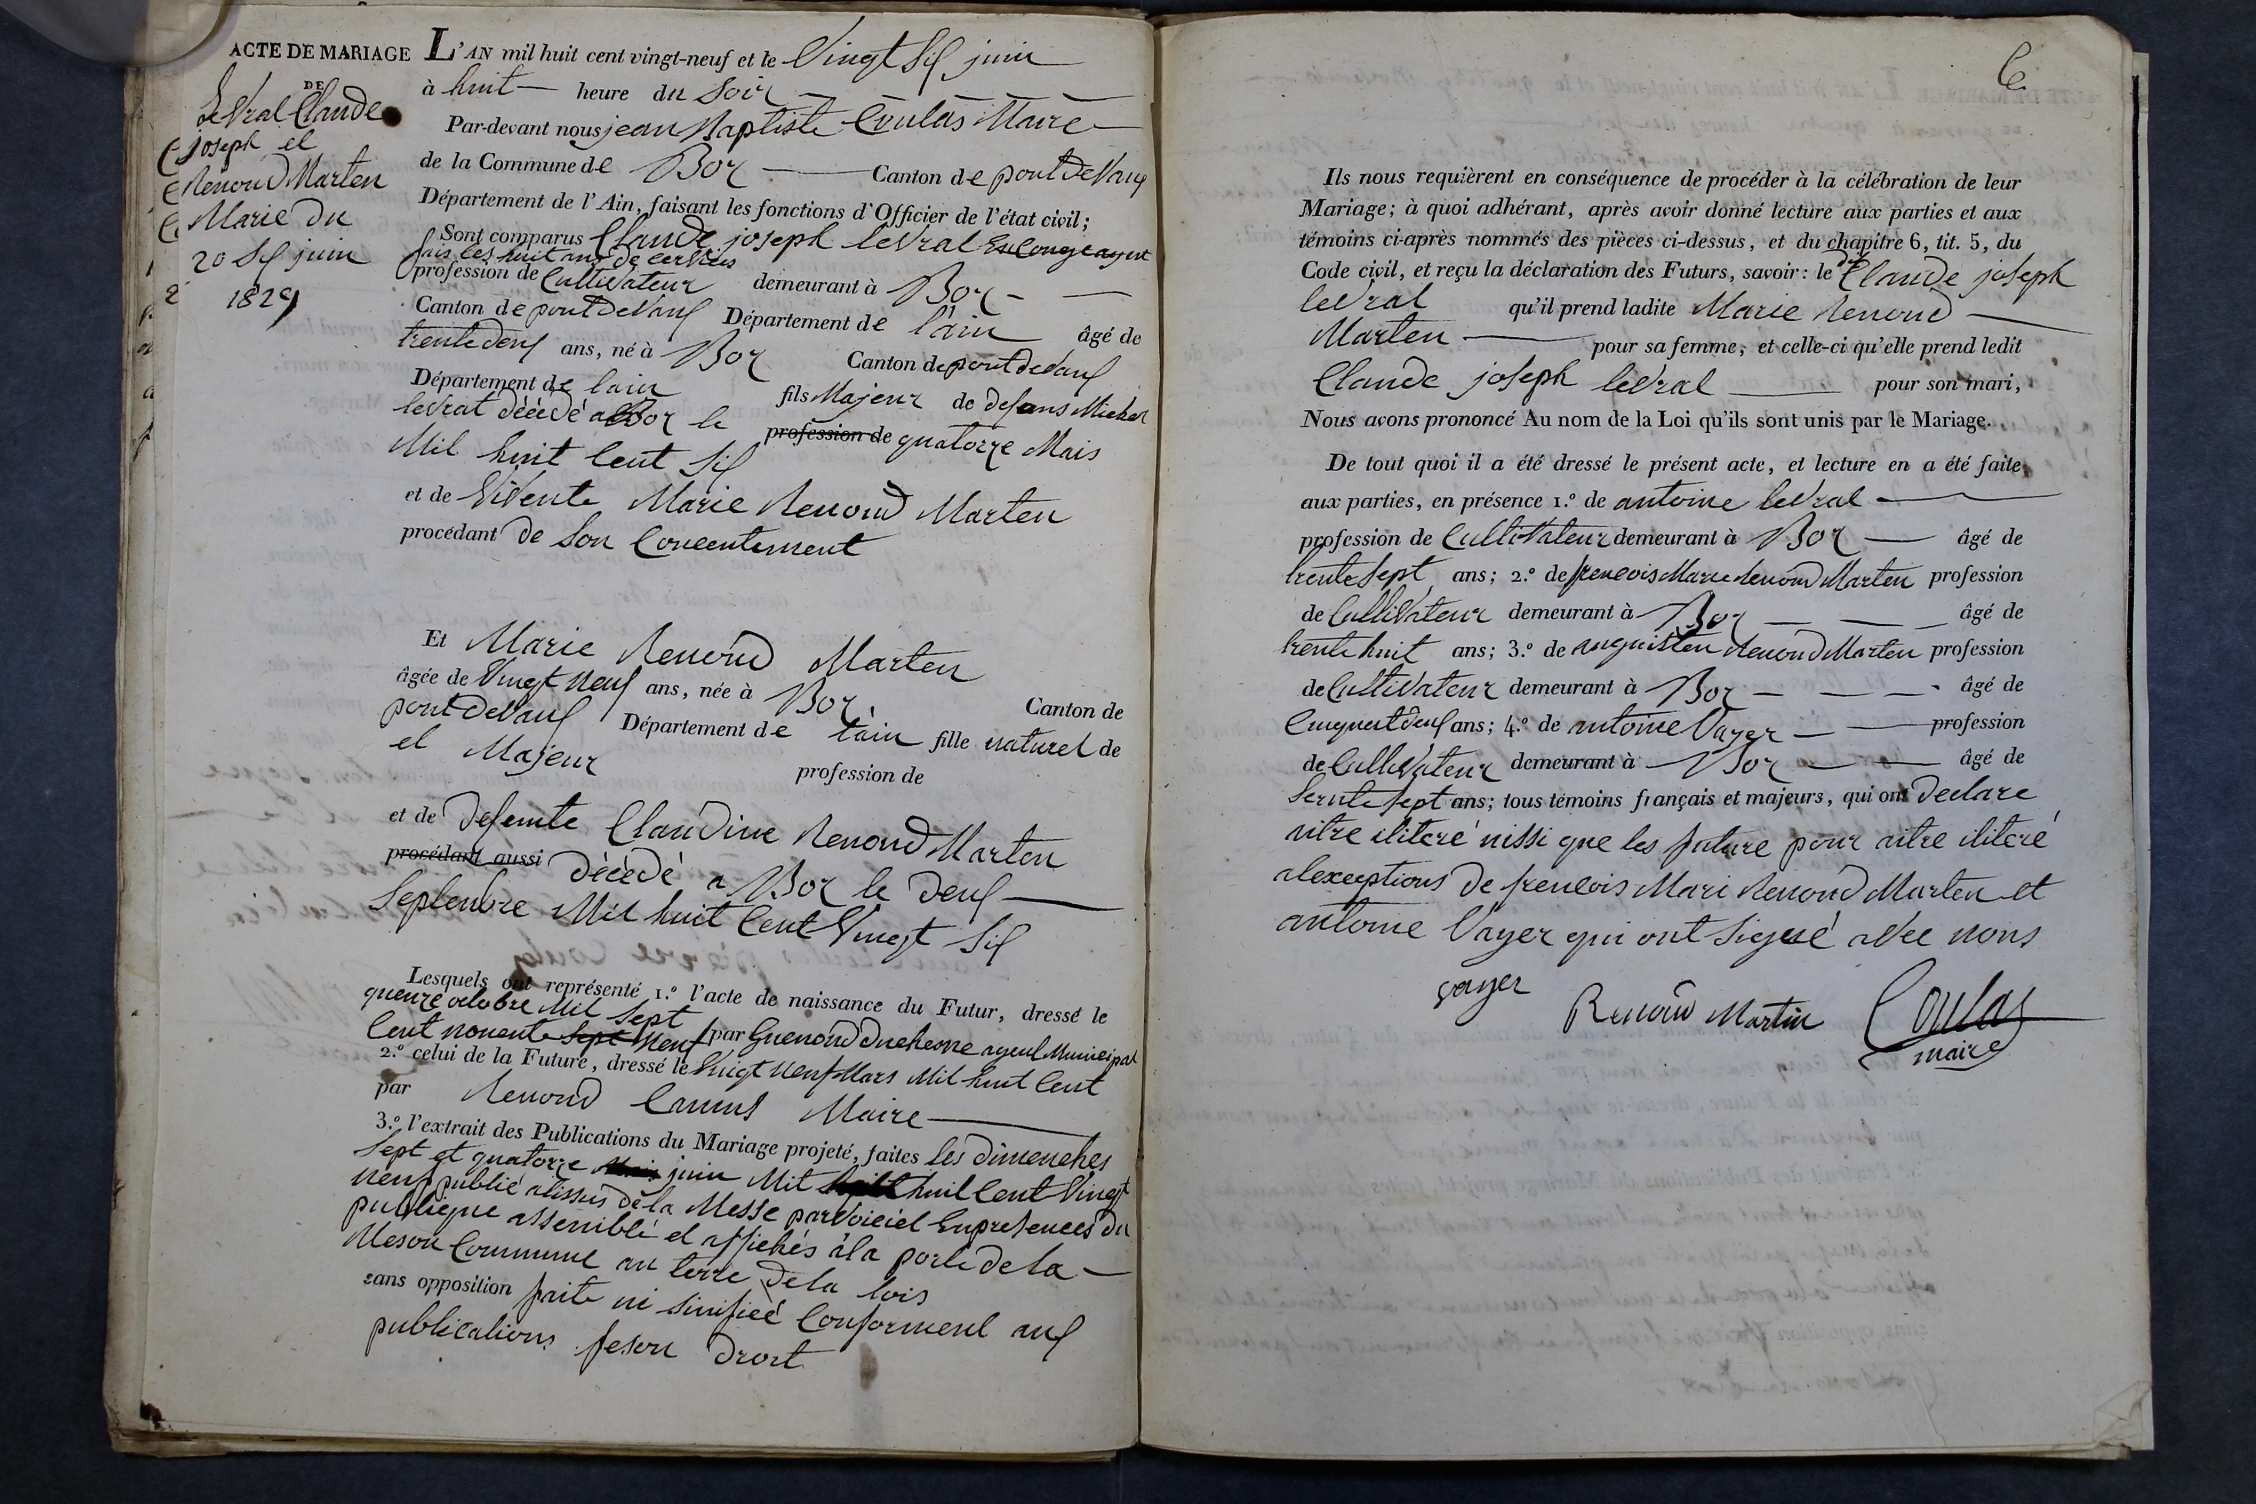 ACTE DE MARIAGE
DE
Levrat Claude
joseph et
Renoud Marten
Marie du
20 Six juin
1829
L'AN mil huit cent vingt-neuf et le Vingt Six juin
à huit heure du Soir
Par-devant nous jean Baptiste Coulas Maire
de la Commune de Boz Canton de pont DeVaux
Département de l'Ain, faisant les fonctions d'Officier de l'état civil;
Sont comparus Claude joseph levrat En Conge ayent
fais les huit ans de cervies
profession de Cultivateur demeurant à Boz
Canton de pont DeVaux Département de l'ain âgé de
trente deux ans, né à Boz Canton de pont deVaux
Département de lain fils Majeur de defans Michel
levrat décédé a Boz le profession de quatorze Mais
Mil huit Cent Six
et de Vivente Marie Renoud Marten
procédant de Son Concentement
Et Marie Renoud Marten
âgée de Vingt Neuf ans, née à Boz Canton de
pont DeVaux Département de l'ain fille naturel de
et Majeur profession de
et de defente Claudine Renoud Marten
procédant aussi décédé a Boz le deux
Septenbre Mil huit Cent Vingt Six
Lesquels ont représenté 1.º l'acte de naissance du Futur, dressé le
quenze octobre Mil Sept
Cent nonente Sept Neuf par Guenoud Duchesne agent Municipal
2.º celui de la Future, dressé le Vingt Neuf Mars Mil huit Cent
par Renoud Camus Maire
3.º l'extrait des Publications du Mariage projeté, faites les dimenches
Sept et quatorze juin Mil huit Cent Vingt
neuf publié alissus de la Messe parvoiciel En presences du
publique assemblé et affichés à la porte de la
Meson Commune au terme de la lois
sans opposition faite ni sinifieé Conforment aux
publications feson droit
Ils nous requièrent en conséquence de procéder à la célébration de leur
Mariage; à quoi adhérant, après avoir donné lecture aux parties et aux
témoins ci-après nommés des pièces ci-dessus, et du chapitre 6, tit. 5, du
Code civil, et reçu la déclaration des Futurs, savoir: le dit Claude joseph
levrat qu'il prend ladite Marie Renoud
Marten pour sa femme, et celle-ci qu'elle prend ledit
Claude joseph levrat pour son mari,
Nous avons prononcé Au nom de la Loi qu'ils sont unis par le Mariage.
De tout quoi il a été dressé le présent acte, et lecture en a été faite
aux parties, en présence 1.º de antoine levrat
profession de Cultivateur demeurant à Boz âgé de
trente Sept ans; 2.º de frencois Marie Renoud Marten profession
de Cultivateur demeurant à Boz âgé de
trente huit ans; 3.º de auguisten Renoud Marten profession
de Cultivateur demeurant à Boz âgé de
Cinquent deux ans; 4.º de antoine Vayer profession
de Cultivateur demeurant à Boz âgé de
Sept ans; tous témoins français et majeurs, qui ont declare
aitre iliteré nissi que les future pour aitre iliteré
alexceptions de frencois Mari Renoud Marten et
antoine Vayer qui ont Signé avec nous
Renoud Martin
Coulas
maire